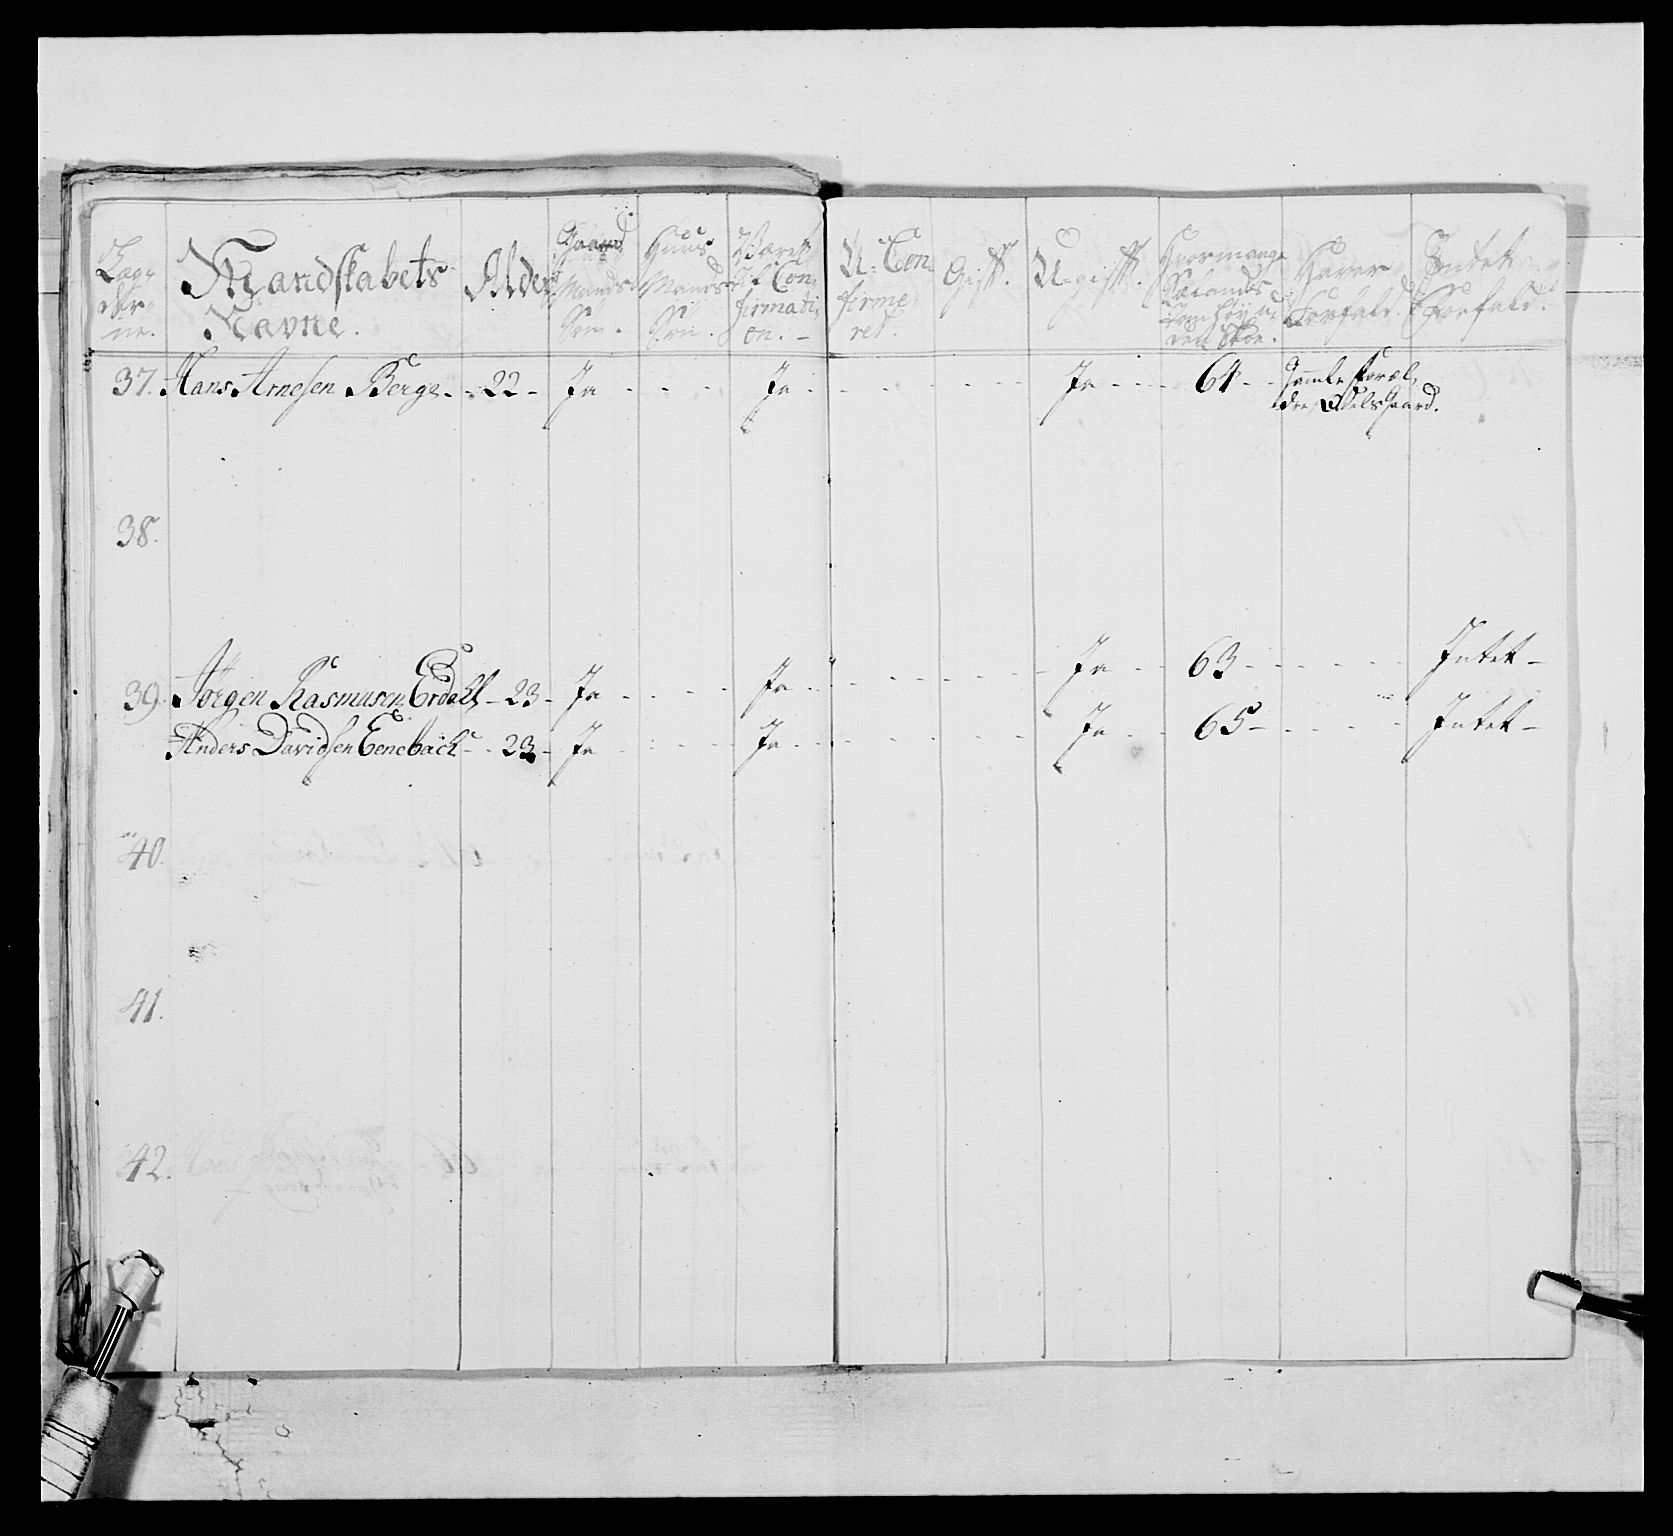 Læg-
derne. Mandskabets Navne. Alder Gaard Mands Søn. Huus Mands Søn. Været til Confirmation. U-Confirmeret. Gift. U-gift. Hvormange Sælands Tom. høy uden Skoe. Haver Forfald. Intet Forfald.
37. Hans Arnesen Berge - 22 - Ja Ja Ja 64 - Gamle Foræl-
dre, OdelsGaard.
38.
39. Jörgen Rasmusen Erdahl - 23 - Ja Ja Ja 63 - Intet -
Anders Davidsen Eenebach - 23 - Ja Ja Ja 65 - Intet -
40.
41.
42.